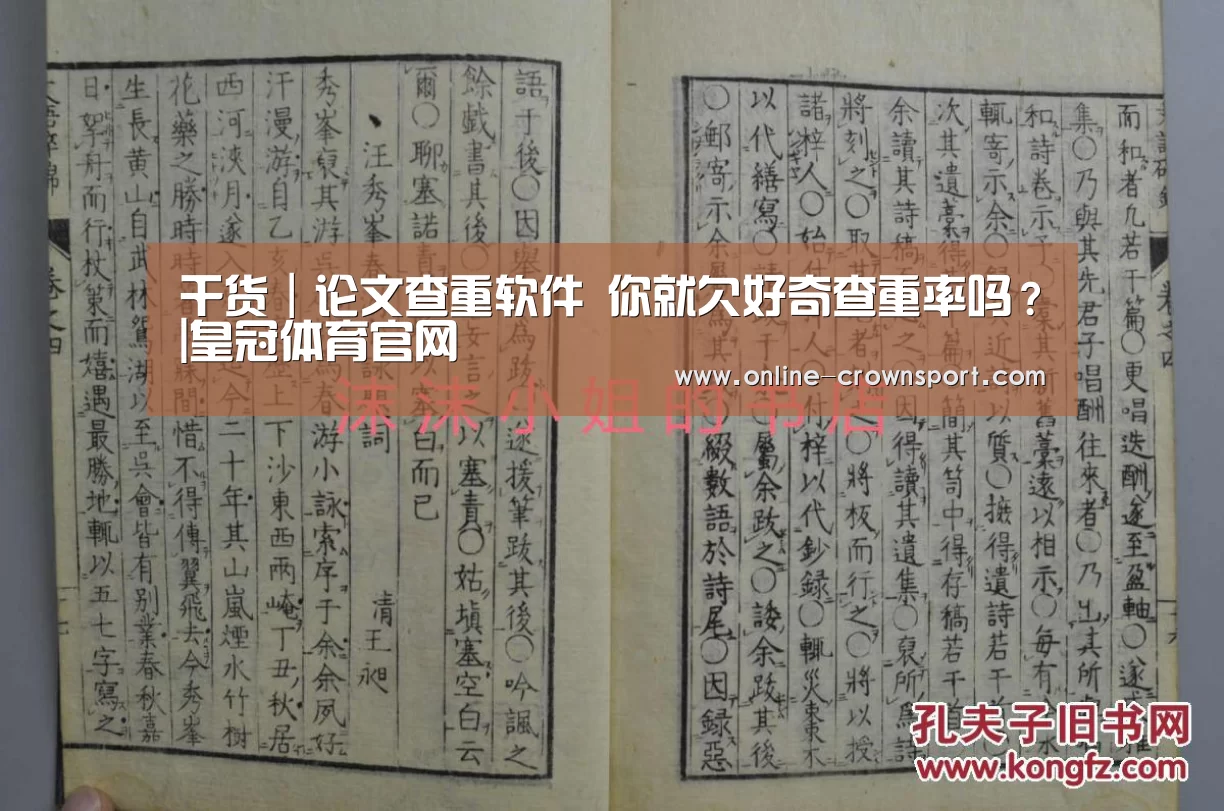 干货 | 论文查重软件 你就欠好奇查重率吗？
|皇冠体育官网
www.online-crownsport.com
沫沫小姐的书店
而和者九若干篇〇更唱迭酬遂至盈軸〇遂
集〇乃與其先君子唱酬往來者〇乃出其所
和詩卷示予〇稾其所舊藁遠以相示〇每有
輒寄示余〇近以質〇摭得遺詩若干
次其遺藁得篇簡其笥中得存稿若干首
余讀其詩稿之因得讀其遺集〇裒所為詩
將刻之〇取其者之〇將板而行之〇將以授
諸梓人〇始付梓以代鈔録〇輒災棗不
以代繕寫〇屬余跋之〇諉余跋其後
〇郵寄示余綴數語於詩尾〇因録惡
語于後〇因為跋遂援筆跋其後〇吟諷之
餘戲書其後〇妄言之以塞責〇姑塡塞空白云
爾〇聊塞諾責以塞白而已
汪秀峯春詠 詞
清王昶
秀峯裒其游吳為春游小詠索序于余余夙好
汗漫游自乙亥上下沙東西兩崦丁丑秋居
西河浹月遂入迄今二十年其山嵐煙水竹樹
花藥之勝時時寐間惜不得傅翼飛去今秀峯
生長黄山自武林鴛湖以至吳會皆有别業春秋嘉
日拏舟而行杖策而嬉遇最勝地輒以五七字寫之
卷之四
孔夫子旧书网
www.kongfz.com